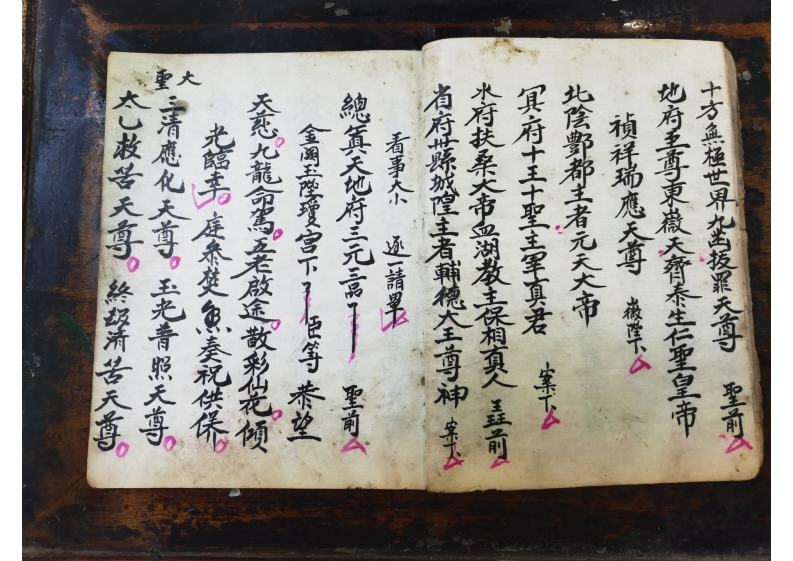 十方無極世界九幽拔罪天尊 聖前
地府至尊東嶽天齊泰生仁聖皇帝
禎祥瑞應天尊 嶽陛下
北陰酆都主者元天大帝
冥府十王十聖王軍真君 案下
水府扶桑大帝血湖教主保相真人 前
省府世縣城隍主者輔德大王尊神 案下
看事大小 逐一請畢
總真天地府三元三品 聖前
金闕玉陛瓊宮下 臣等 恭望
天慈九龍命駕五老啟途散彩仙花傾
光臨幸 庭叅焚魚奏祝供保
大聖
三清應化天尊 玉光普照天尊
太乙救苦天尊 終劫濟苦天尊